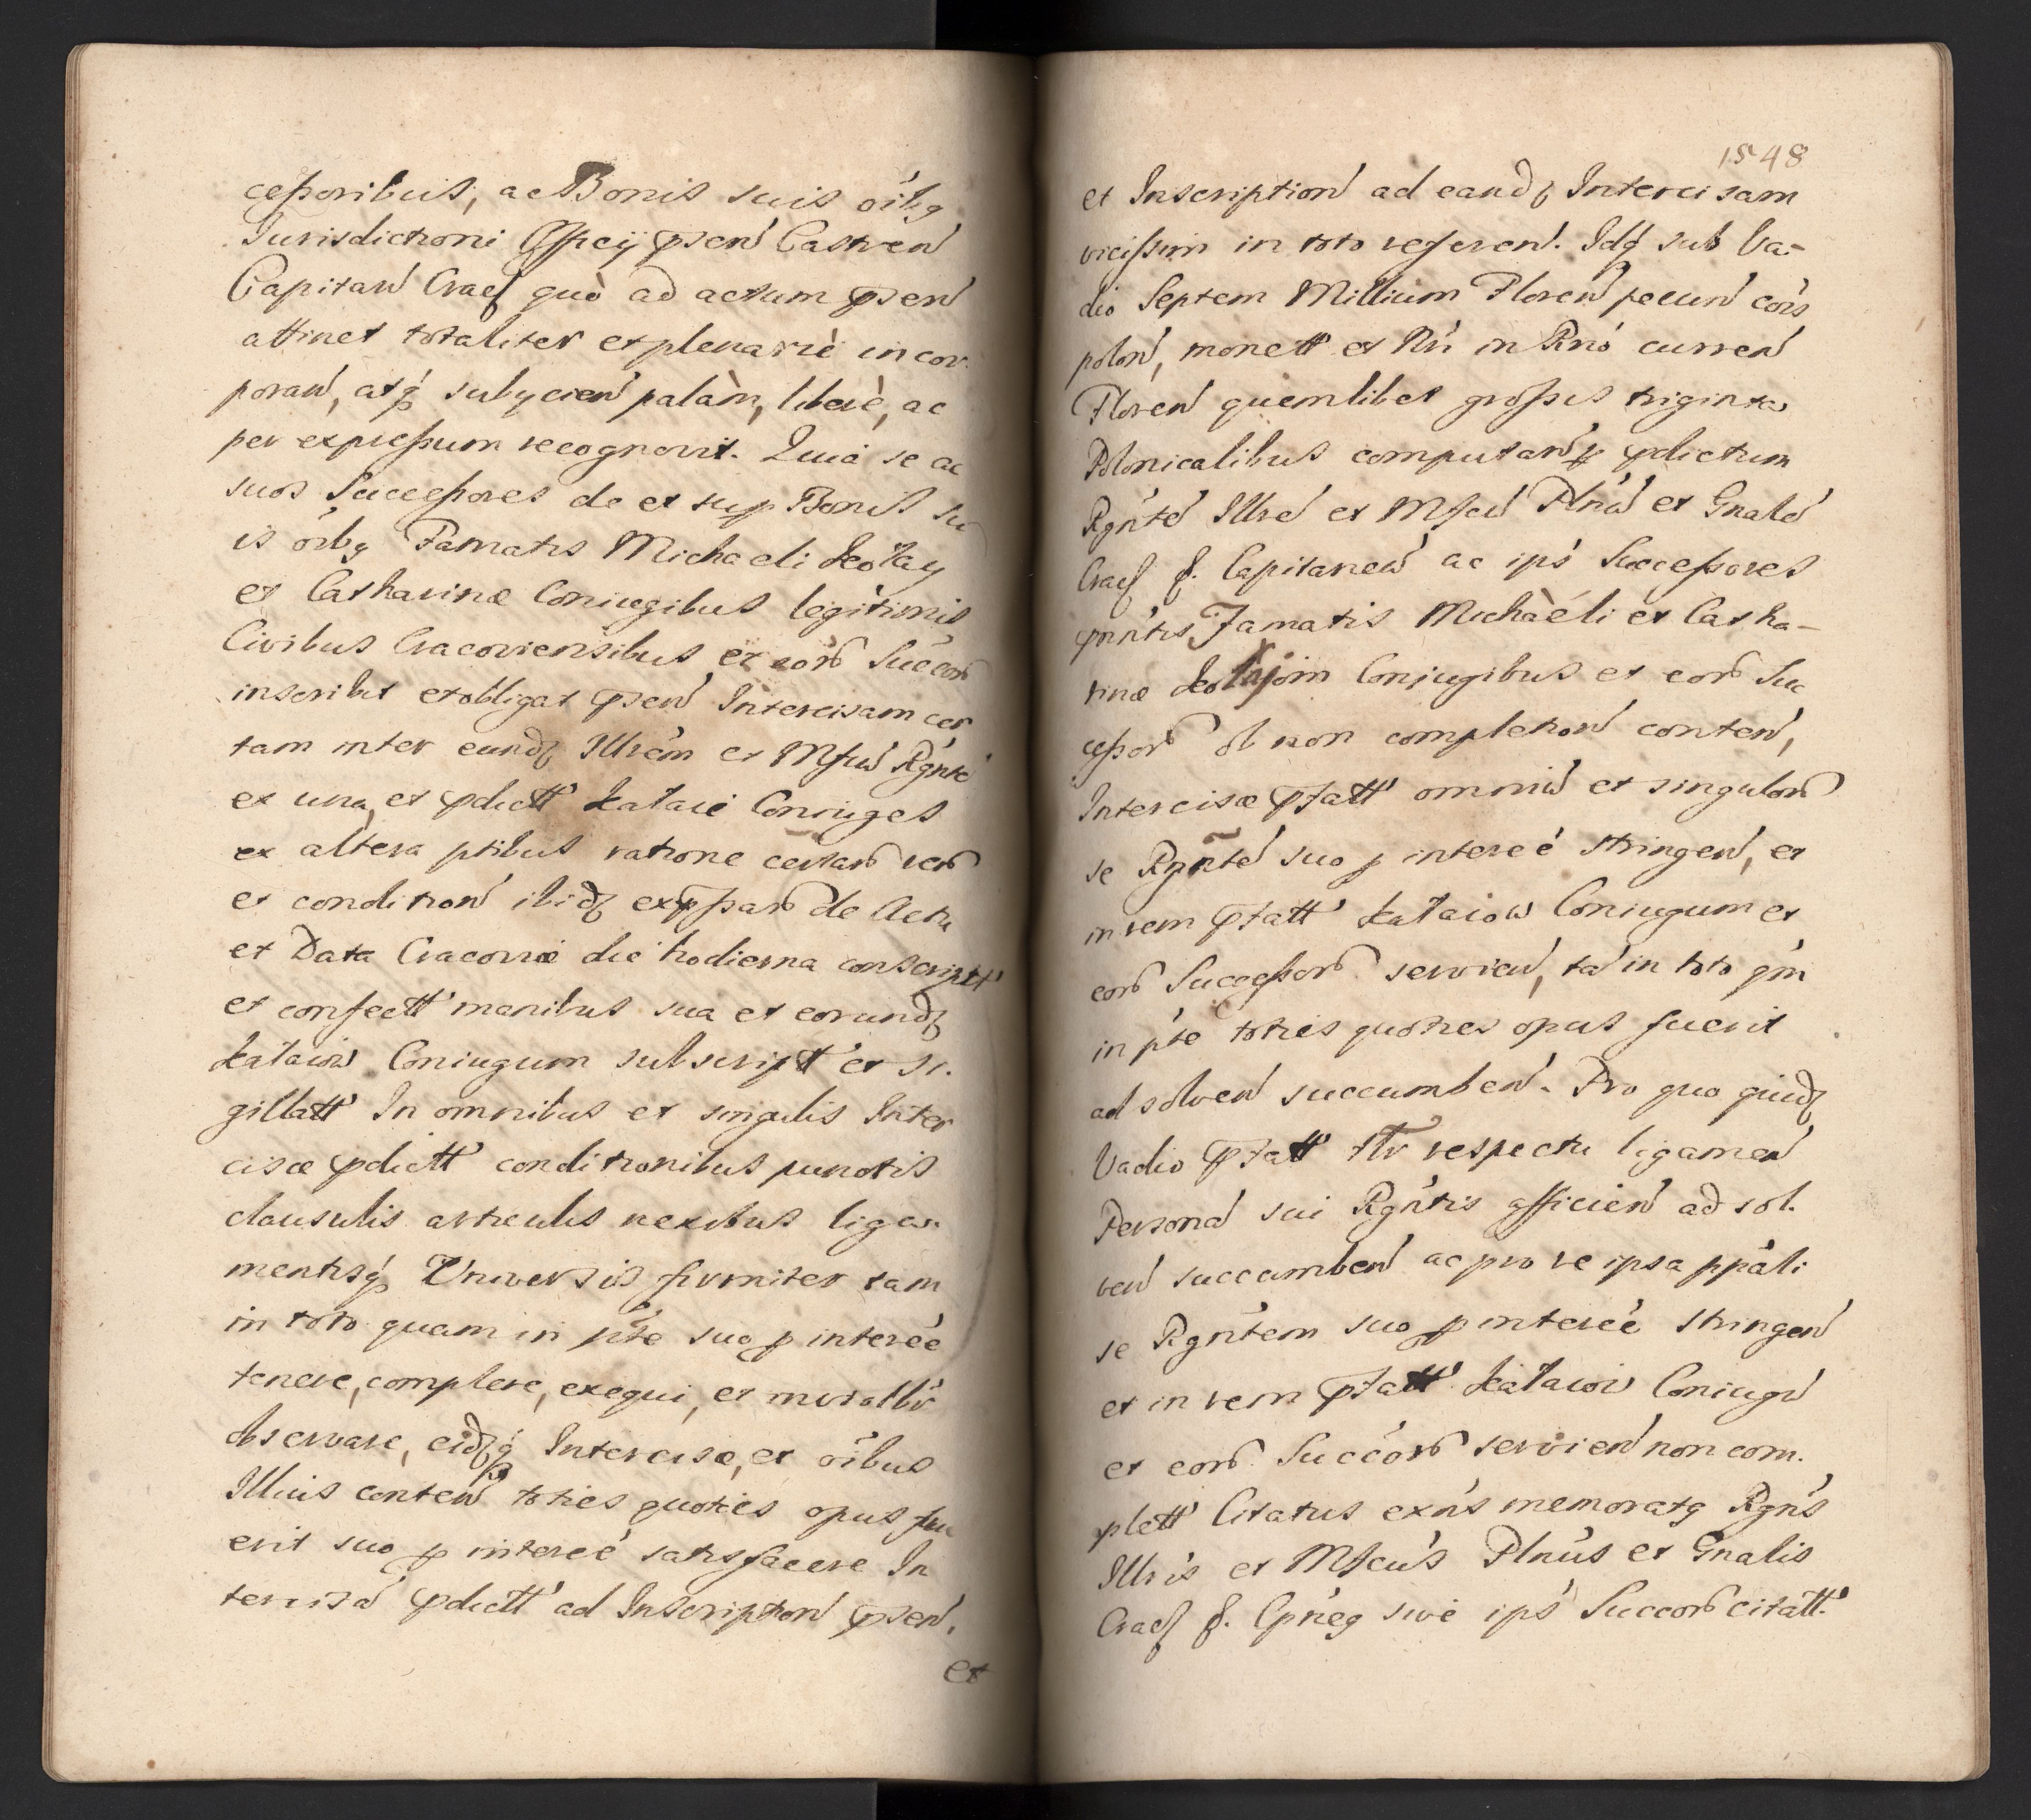 cessoribus, ac Bonis suis oibq
Jurisdictioni Officij psen Castren
Capitan Crac quò ad actum psen
attinet totaliter et plenariè incor.
poran, atq subycien palàm, liberè, ac
per expressum recognovit. Quia se ac
suos Successores de et sup Bonis su
is oibq Famatis Michaeli
et Catharinæ Coniugibus legitimis
Civibus Cracoviensibus et eor Succor
inscribit et obligat psen Intercisam cer
tam inter eundz Illrem et Mfcu Rgnte
ex una, et pdictt Kataie Coniuges
ex altera ptibus ratione certar rer
et condition ibidz exppssar de Actu
et Data Cracoviæ die hodierna conscriptt
et confectt manibus sua et eorundz
Kataiow Coniugum subscriptt et si.
gillatt In omnibus et singulis Inter
cisæ pdictt conditionibus punctis
clausulis articulis nexibus liga.
mentisq Universis firmiter tam
in toto quam in pte suo p intereé
tenere, complere, exequi, et
observare, eidzq Intercisæ, et oibus
Illius conten toties quoties opus fu
erit suo p intereé satisfacere In
tercisa pdictt ad Inscription psen,
et
1548
et Inscription ad eandz Intercisam
vicissim in toto referen. Idq sub Va-
dio Septem Millium Floren pecun cois
polon, monett et Nri in Rno curren
Floren quemlibet grossis triginta
Polonicalibus computan p pdictum
Rgnte Illre et Mfcu Plnu et Gnale
Crac g. Capitaneu ac ips Successores
pnntis Famatis Michàeli et Catha-
rinæ Coniugibus et eor Suc
cessor ob non completion conten,
Intercisæ pfatt omniu et singulor
se Rgnte suo p intereé stringen, et
in rem pfatt Kataiow Coniugum et
eor Successor servien, ta in toto qm
in pte toties quoties opus fuerit
ad solven succumben. Pro quo quidz
Vadio pfatt ttr respectu ligamen
Persona sui Rgntis afficien ad sol.
ven succumben ac pro re ipsa ppali
se Rgntem suo p intereé stringen
et in rem pfatt Kataiow Coniugu
et eor Succor servien non com.
plett Citatus exns memoratq Rgns
Illris et Mfcus Plnus et Gnalis
Crac g. Cpneq sive ips Succor citatt